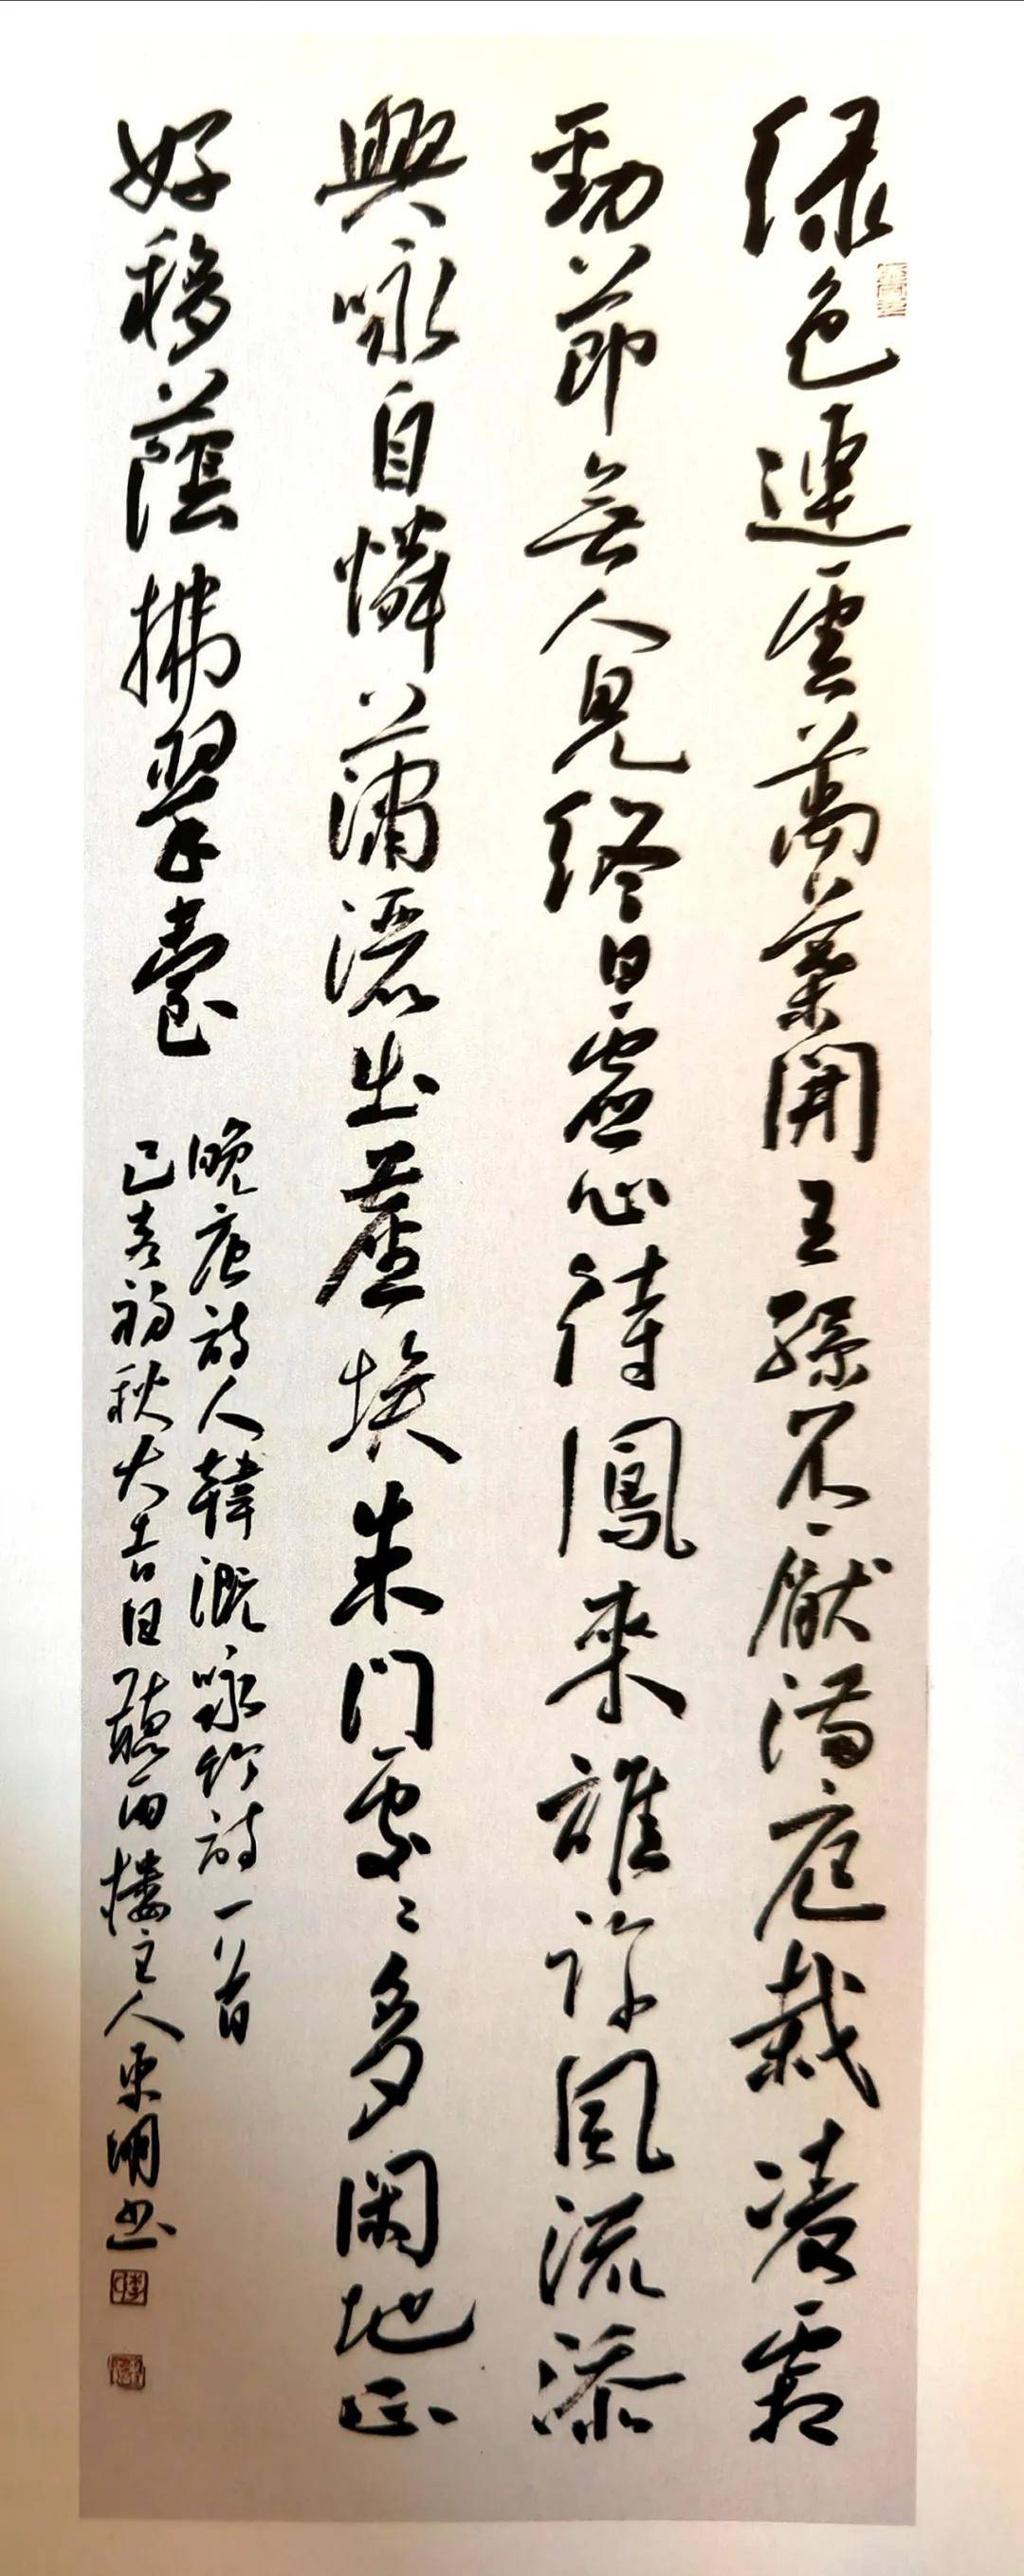 绿色連雲萬葉開王孫不厭滿庭栽凌霜
勁節無人見終日虛心待鳳來誰許風流添
興咏自憐蕭灑出塵埃朱门處々多闲地正
好移蔭拂翠臺
晚唐诗人韓溉咏竹诗一首
己亥初秋大吉日聽雨楼主人東明书